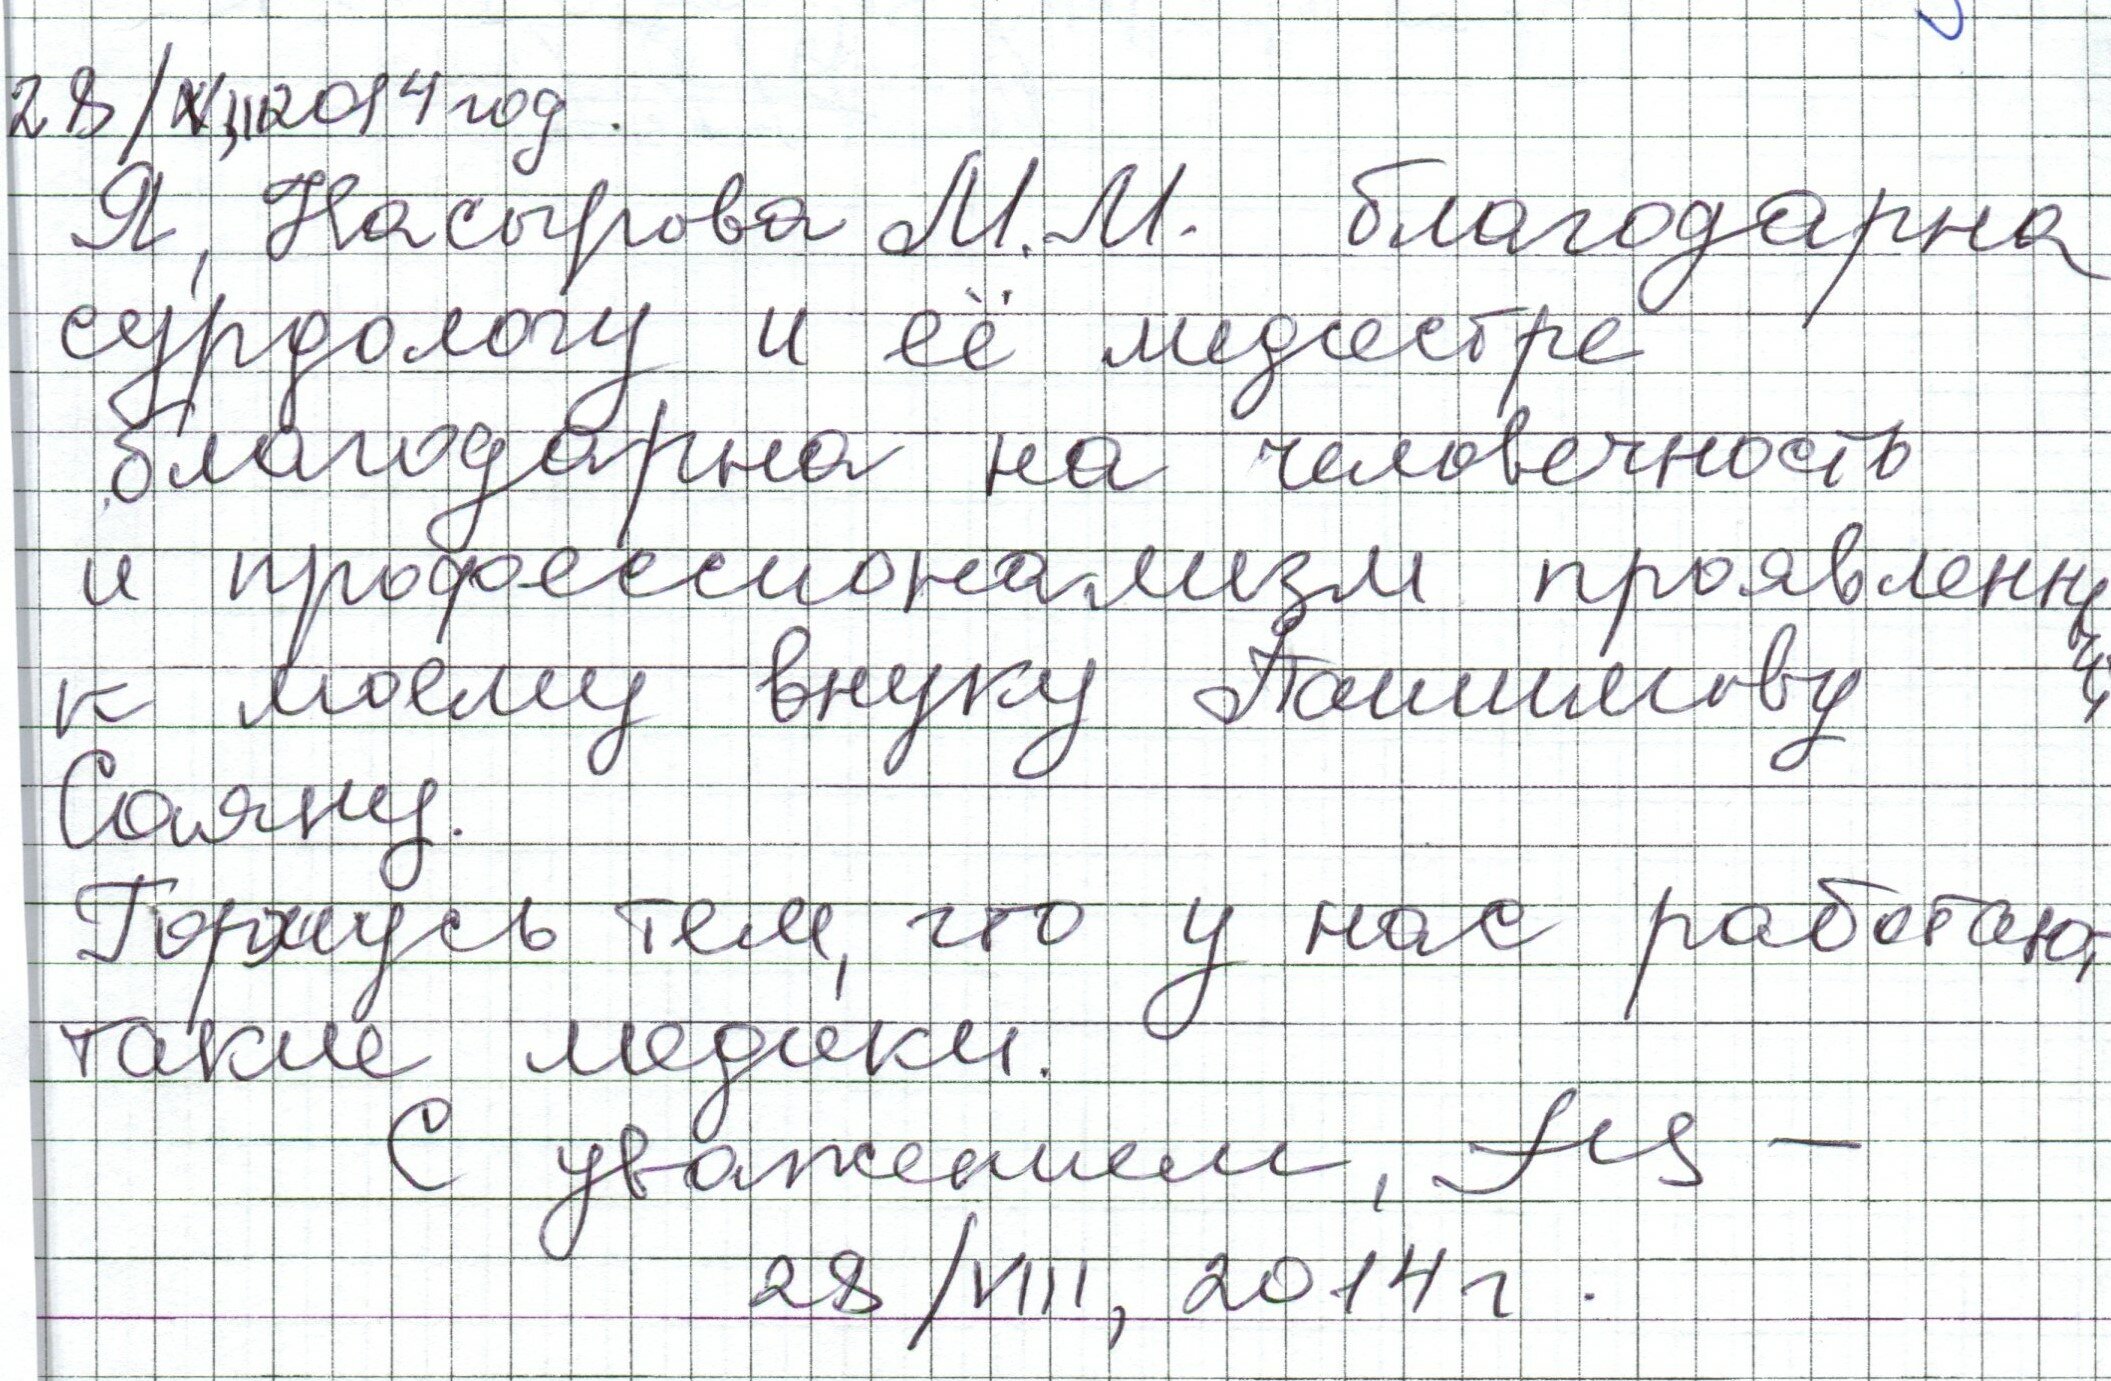 28/VIII 2014 год.
Я, Насырова М.М. благодарна
сурдологу и её медсестре
благодарна на человечность
и профессионализм проявленн
к моему внуку Пашимову
Саяну.
Горжусь тем, что у нас работают
такие медики.
С уважением,
28/VIII, 2014 г.